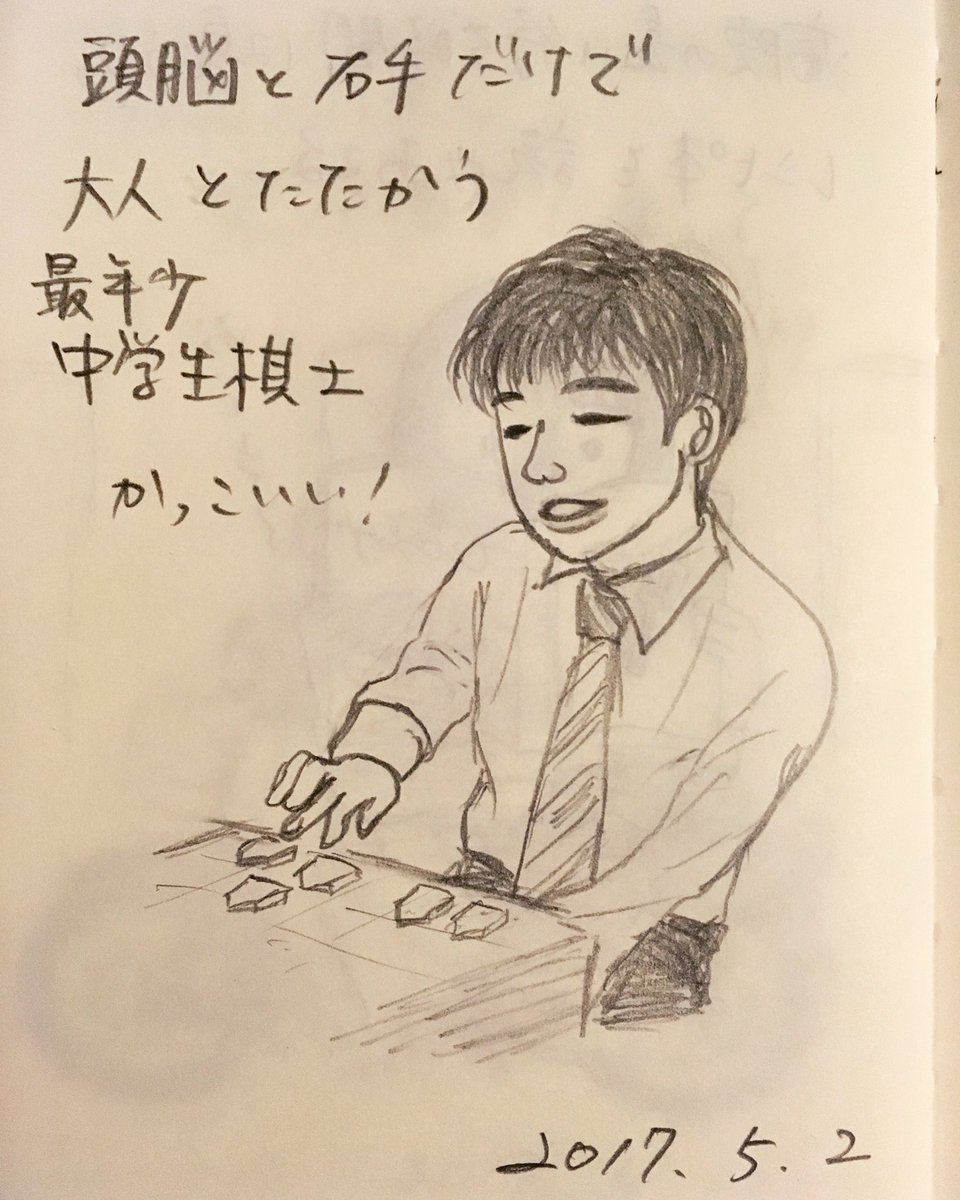 頭脳と右手だけで
大人とたたかう
最年少
中学生棋士
かっこいい!
2017.5.2